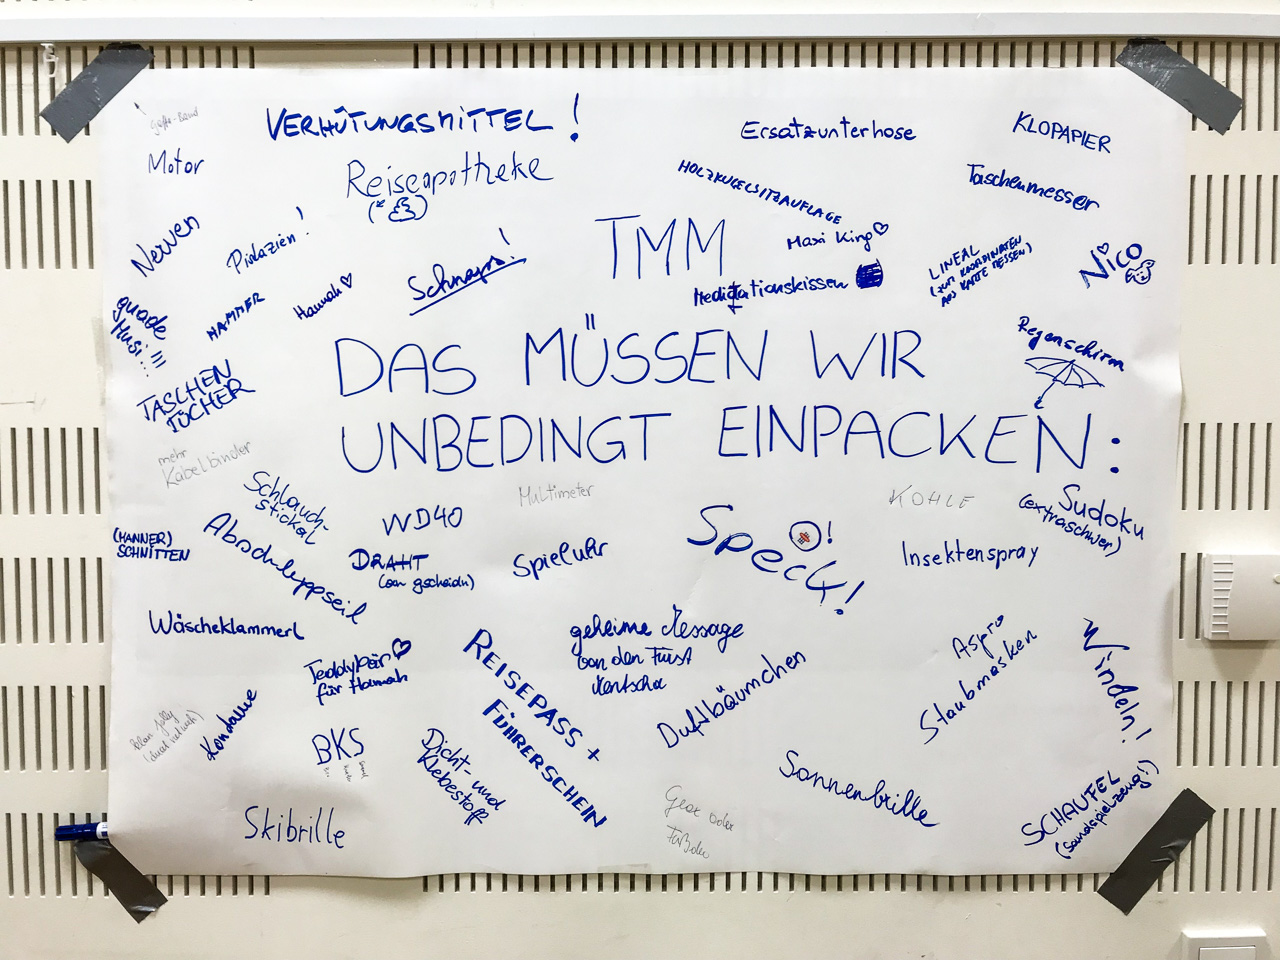 VERHÜTUNGSMITTEL!
Ersatzunterhose
KLOPAPIER
Motor
Reiseapotheke
HOLZKUGELSITZAUFLAGE
Taschenmesser
Nerven
Pistazien!
Schnaps!
TMM
Maxi King
Meditationskissen
LINEAL
(ZUM KOORDINATEN
AUS KARTE MESSEN)
Nico
guade
Musi!!!
HAMMER
Hannah
Regenschirm
DAS MÜSSEN WIR
UNBEDINGT EINPACKEN:
TASCHEN
TÜCHER
mehr
Kabelbinder
Schlauch-
stickal
Multimeter
KOHLE
Sudoku
(extraschwer)
(MANNER)
SCHNITTEN
Abschleppseil
WD40
DRAHT
(an gscheidn)
Spieluhr
Speck!
Insektenspray
Wäscheklammerl
Teddybär
für Hannah
geheime Message
von den Fürst
REISEPASS +
FÜHRERSCHEIN
Duftbäumchen
Aspro
Staubmasken
Windeln!
Kondome
BKS
Dicht- und
Klebestoff
Sonnenbrille
SCHAUFEL
(Sandspielzeug!)
Skibrille